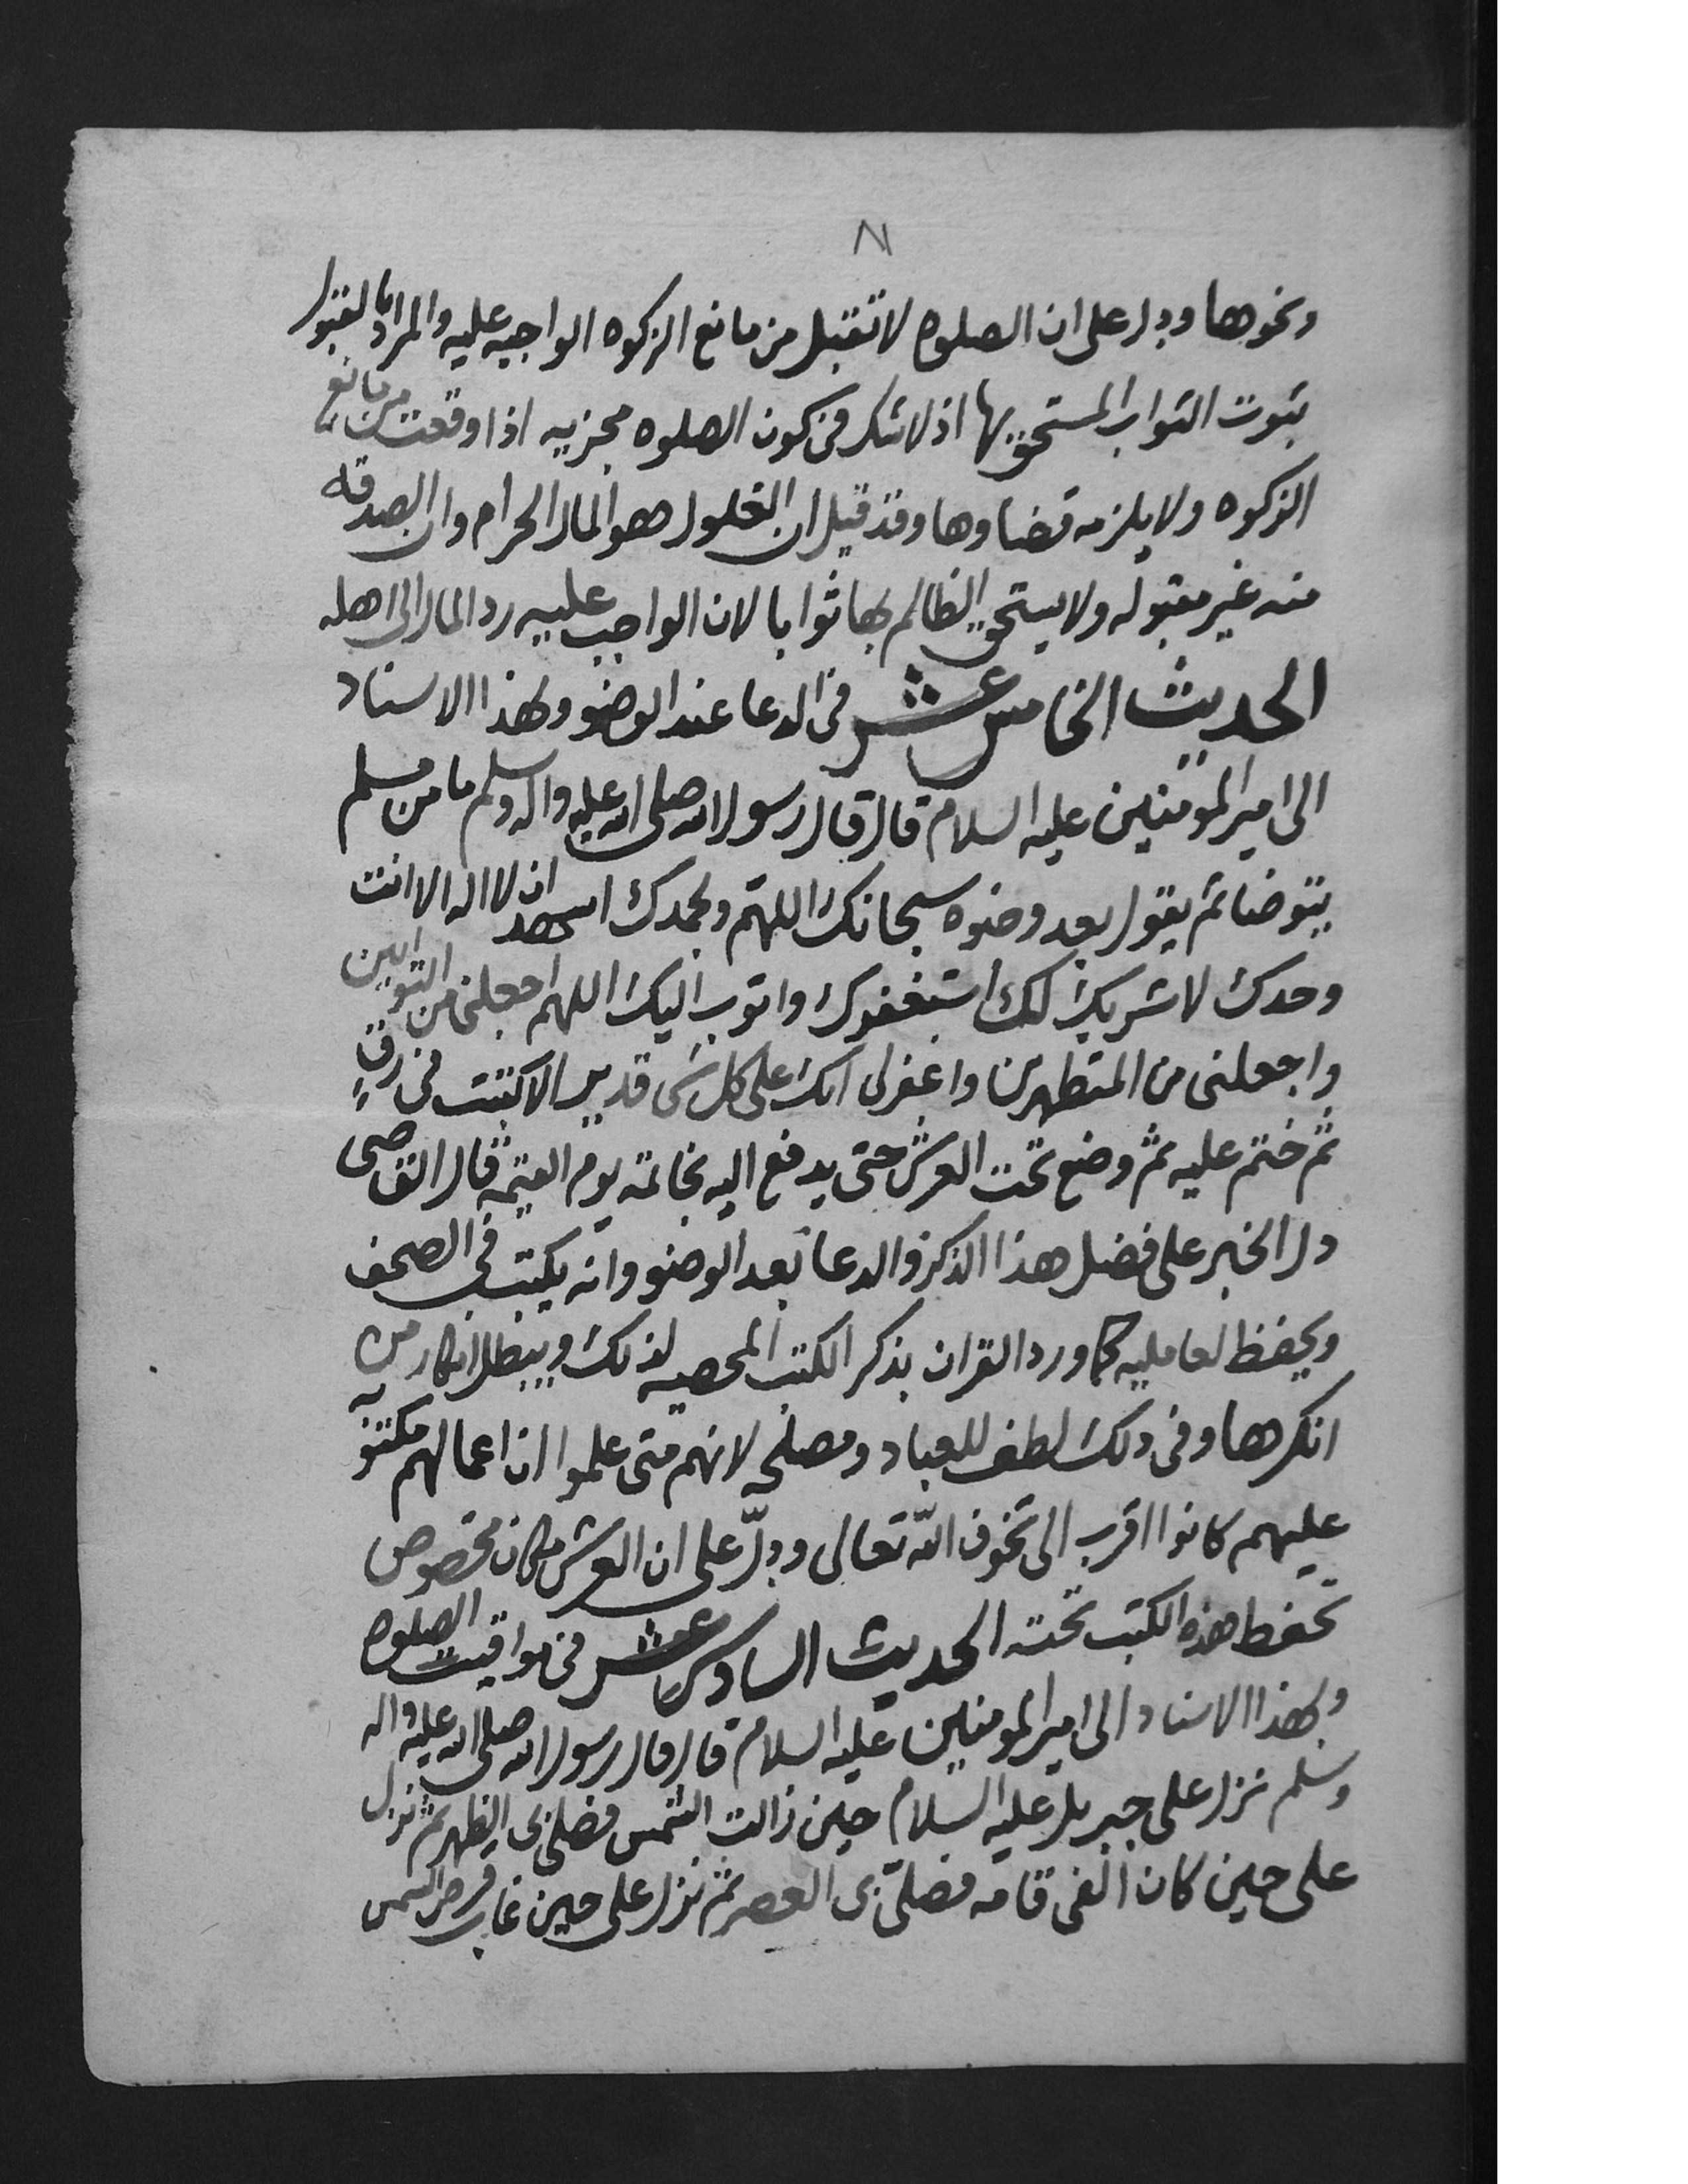 ٨١
ونحوها ودل على ان الصلوه لا تقبل من مانع الزكوه الواجبه عليه والمراد بالقبول
ثبوت الثواب المستحق بها اذ لا شك في كون الصلوه مجزيه اذا وقعت من مانع
الزكوه ولا يلزمه قضاوها وقد قيل ان الغلول هو المال الحرام وان الصدقه
منه غير مقبوله ولا يستحق الظالم بها ثوابا لان الواجب عليه رد المال الى اهله
الحديث الخامس عشر في الدعا عند الوضو وبهذا الاسناد
الى امير المومنين عليه السلام قال قال رسول الله صلى الله عليه واله وسلم ما من مسلم
يتوضا ثم يقول بعد وضوه سبحانك اللهم وبحمدك اشهد ان لا اله الا انت
وحدك لا شريك لك استغفرك واتوب اليك اللهم اجعلني من التوابين
واجعلني من المتطهرين واغفر لي انك على كل شى قدير الا كتبت في رق
ثم ختم عليه ثم وضع تحت العرش حتى يدفع اليه بخاتمه يوم القيمه قال القاضى
دل الخبر على فضل هذا الذكر والدعا بعد الوضو وانه يكتب في الصحف
ويحفظ لعامليه كما ورد القران بذكر الكتب المحصيه لذلك ويبطل انكار من
انكرها وفي ذلك لطف للعباد ومصلحه لانهم متى علموا ان اعمالهم مكتوبه
عليهم كانوا اقرب الى تخوف الله تعالى ودلّ على ان العرش مكان مخصوص
تحفظ هذه الكتب تحته الحديث السادس عشر في مواقيت الصلوه
وبهذا الاسناد الى امير المومنين عليه السلام قال قال رسول الله صلى الله عليه واله
وسلم نزل على جبريل عليه السلام حين زالت الشمس فصلى بى الظهر ثم نزل
على حين كان الفى قامه فصلّى بى العصر ثم نزل على حين غاب قرص الشمس